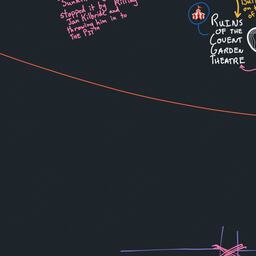 stopped it by Killing
Jan Kilbride and
throwing him in to
The Pit
RUINS
OF THE
COVENT
GARDEN
THEATRE